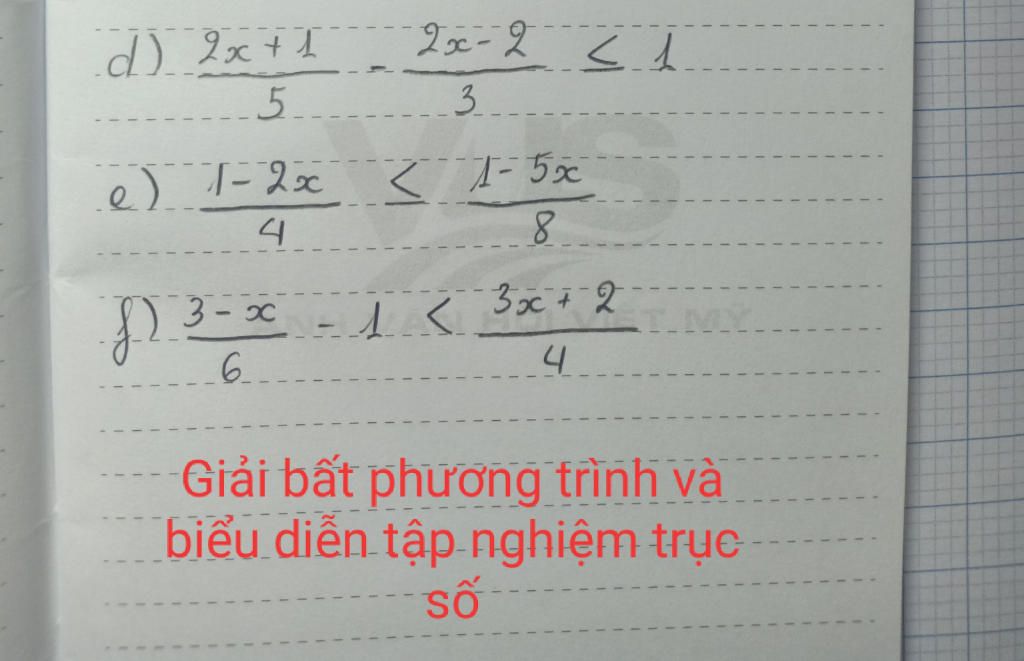 d) (2x + 1)/5 - (2x - 2)/3 ≤ 1
VUS
e) (1 - 2x)/4 ≤ (1 - 5x)/8
f) (3 - x)/6 - 1 < (3x + 2)/4
ANH VĂN HỘI VIỆT MỸ
Giải bất phương trình và
biểu diễn tập nghiệm trục
số